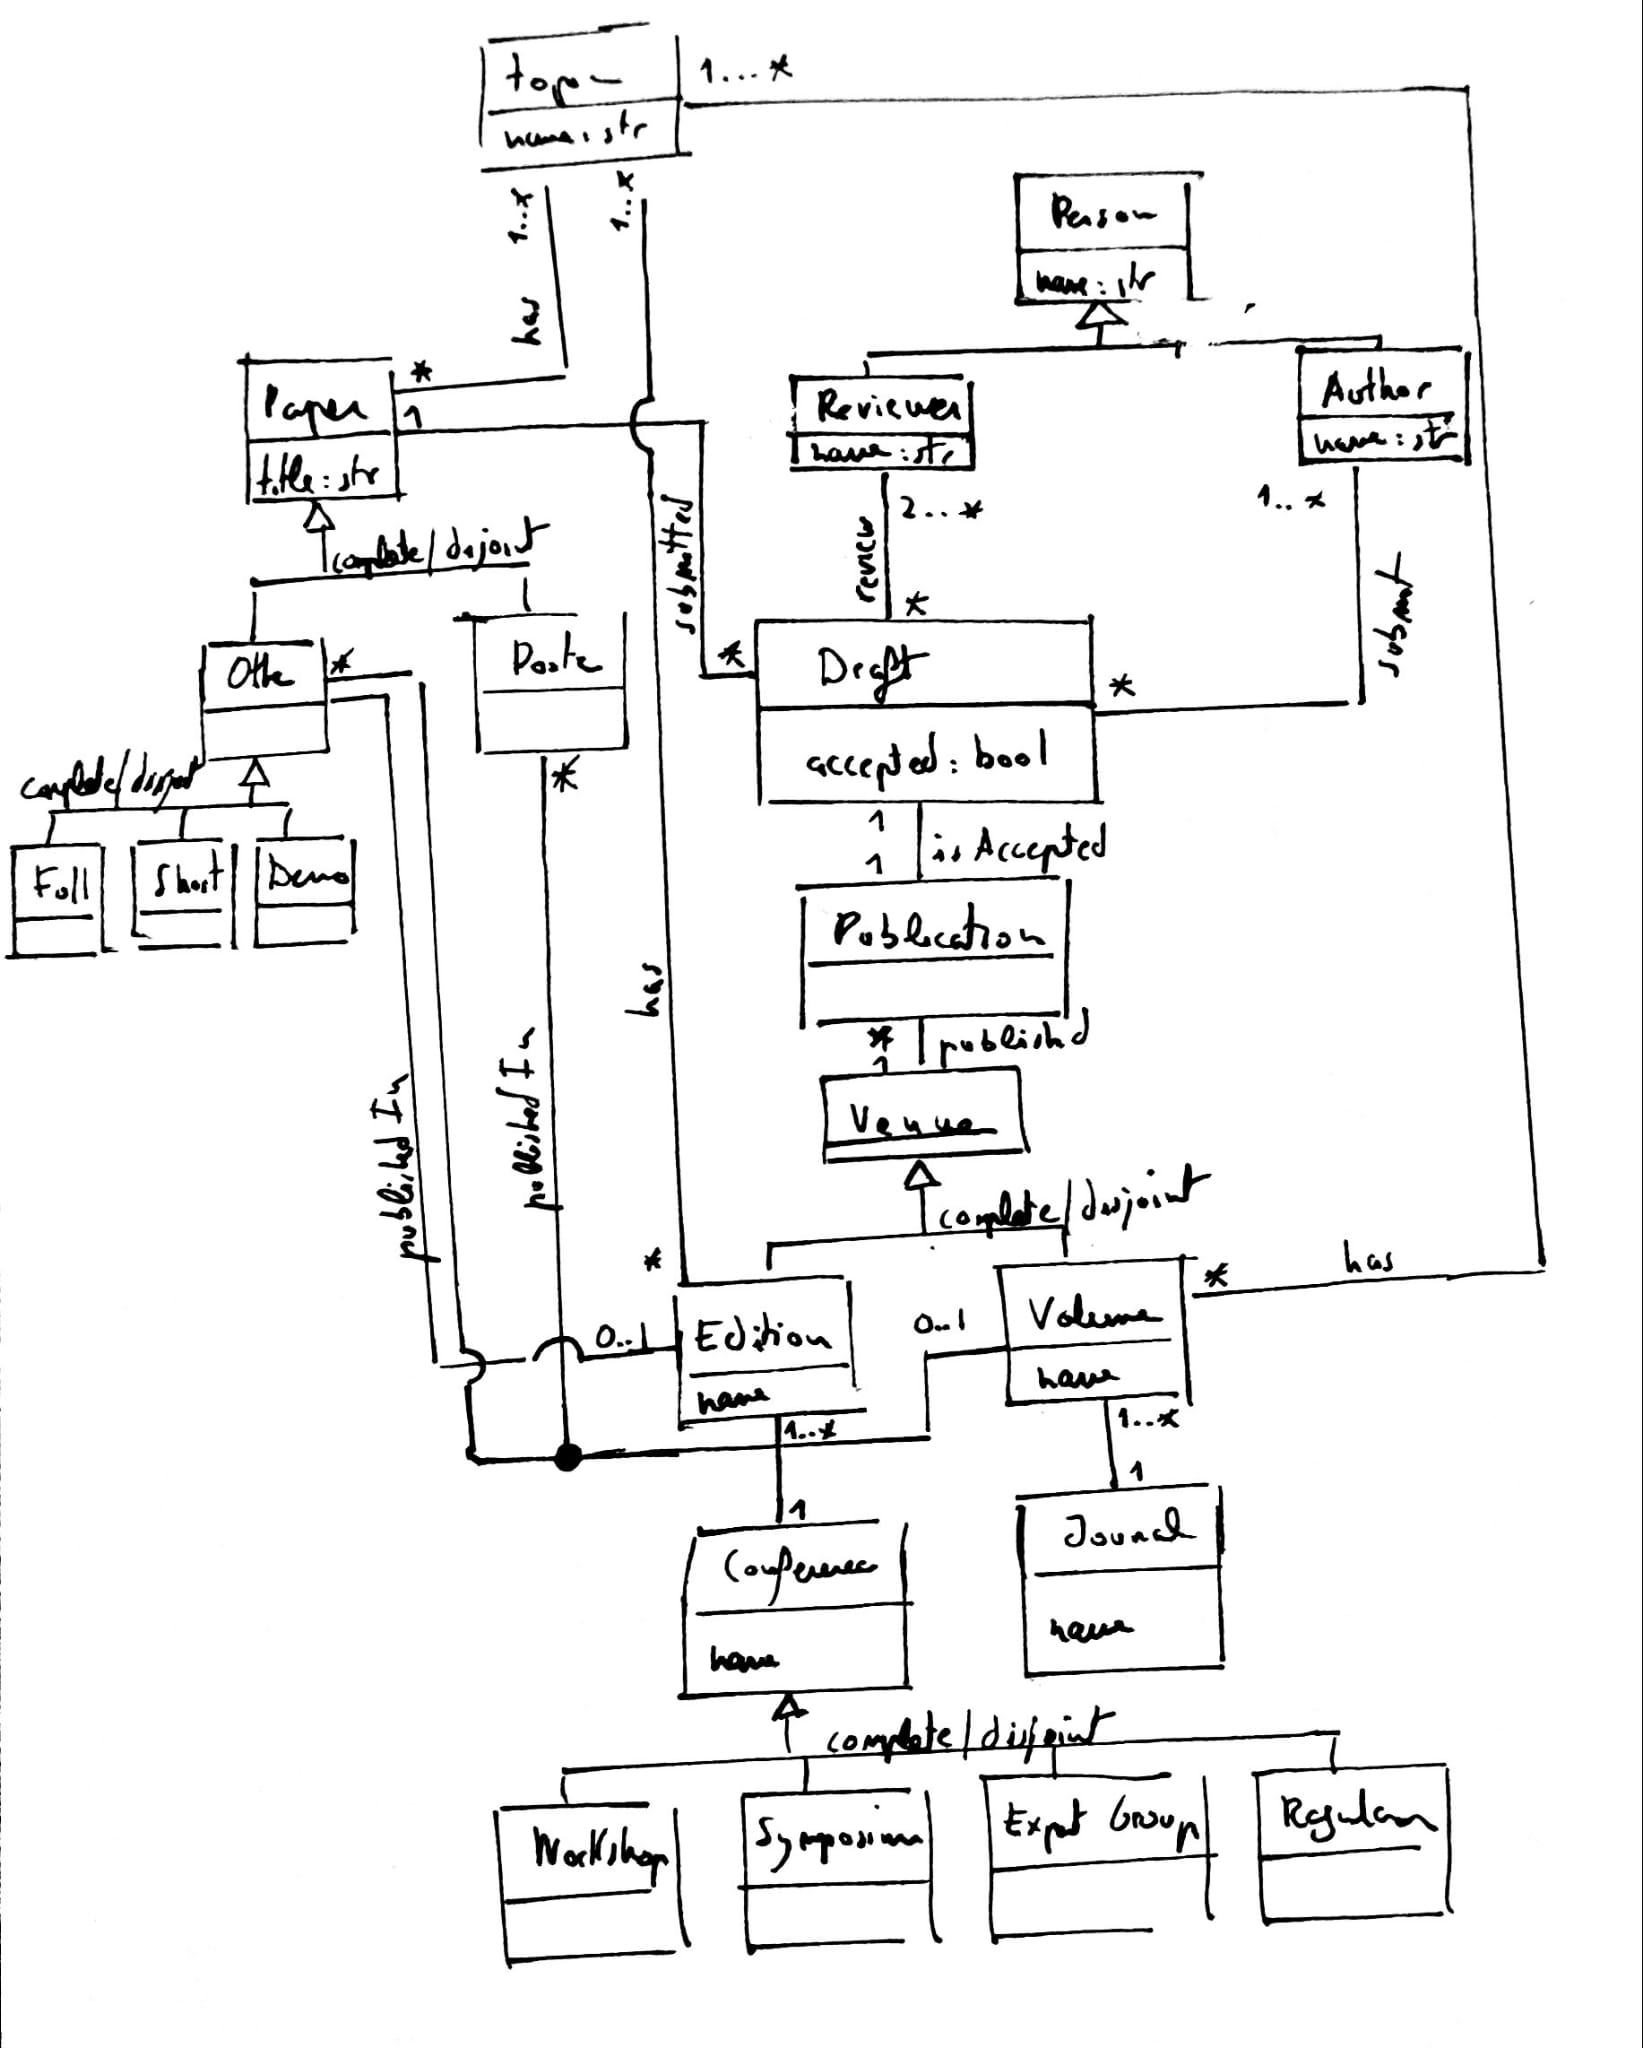 1...*
name: str
1..*
1..*
Person
name: str
has
*
Paper
1
title: str
Reviewer
name: str
Author
name: str
complete/disjoint
submitted
review
2...*
1..*
submit
*
*
Draft
*
accepted: bool
*
*
complete/disjoint
Full
Short
Demo
1
is Accepted
1
Publication
has
*
published
1
Venue
published In
published In
complete/disjoint
*
*
has
0..1
Edition
name
0..1
Volume
name
1..*
1..*
1
1
Conference
name
Journal
name
complete/disjoint
Workshop
Symposium
Expert Group
Regular